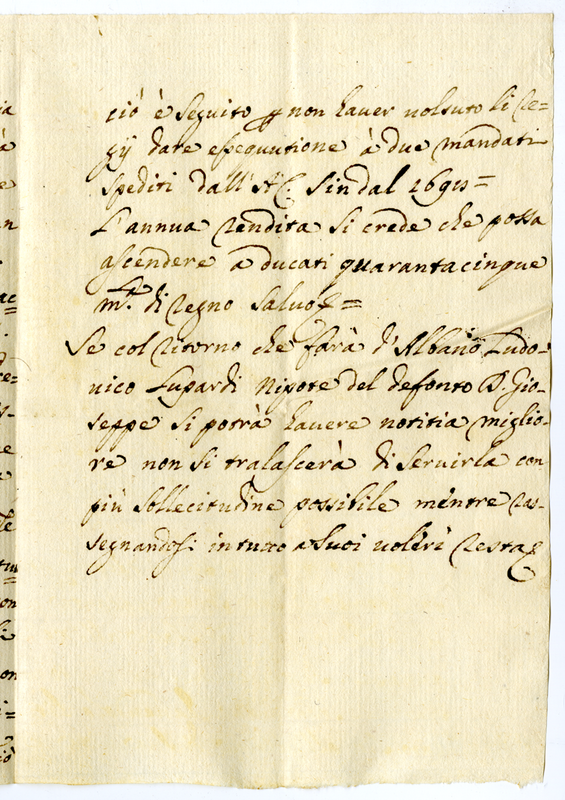 ciò è seguito p non haver volsuto li Re=
gij dare essequutione à due mandati
spediti dall' A.C. sin dal 1695=
L'annua rendita si crede che possa
ascendere a ducati quarantacinque
m.ta di Regno salvo &=
Se col ritorno che farà d'Albano Ludo-
vico Lupardi Nipote del defonto D. Gio-
seppe si potrà havere notitia miglio-
re non si tralascerà di servirla con
più sollecitudine possibile mentre ras-
segnandosi in tutto a suoi voleri resta &